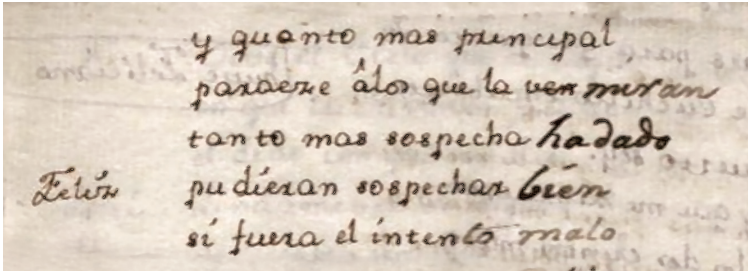 y quanto mas principal
paraeze â los que la ven miran
tanto mas sospecha ha dado
Feliz pudieran sospechar bien
si fuera el intento malo